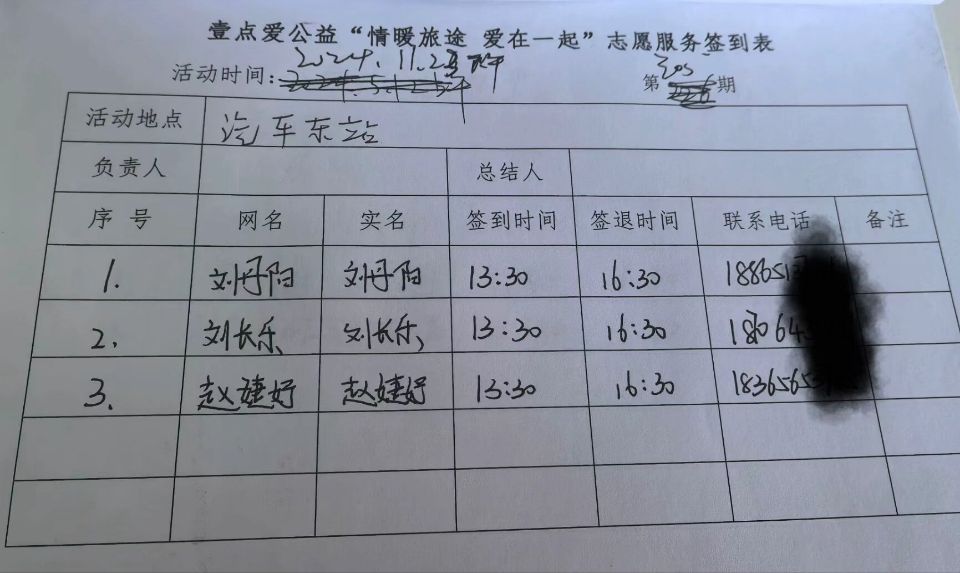 壹点爱公益“情暖旅途 爱在一起”志愿服务签到表
2024.11.23
活动时间: 第 期
活动地点 汽车东站
负责人 总结人
序 号 网名 实名 签到时间 签退时间 联系电话 备注
1. 刘丹阳 刘丹阳 13:30 16:30 188651
2. 刘长乐 刘长乐 13:30 16:30 18064
3. 赵婕妤 赵婕妤 13:30 16:30 1836565